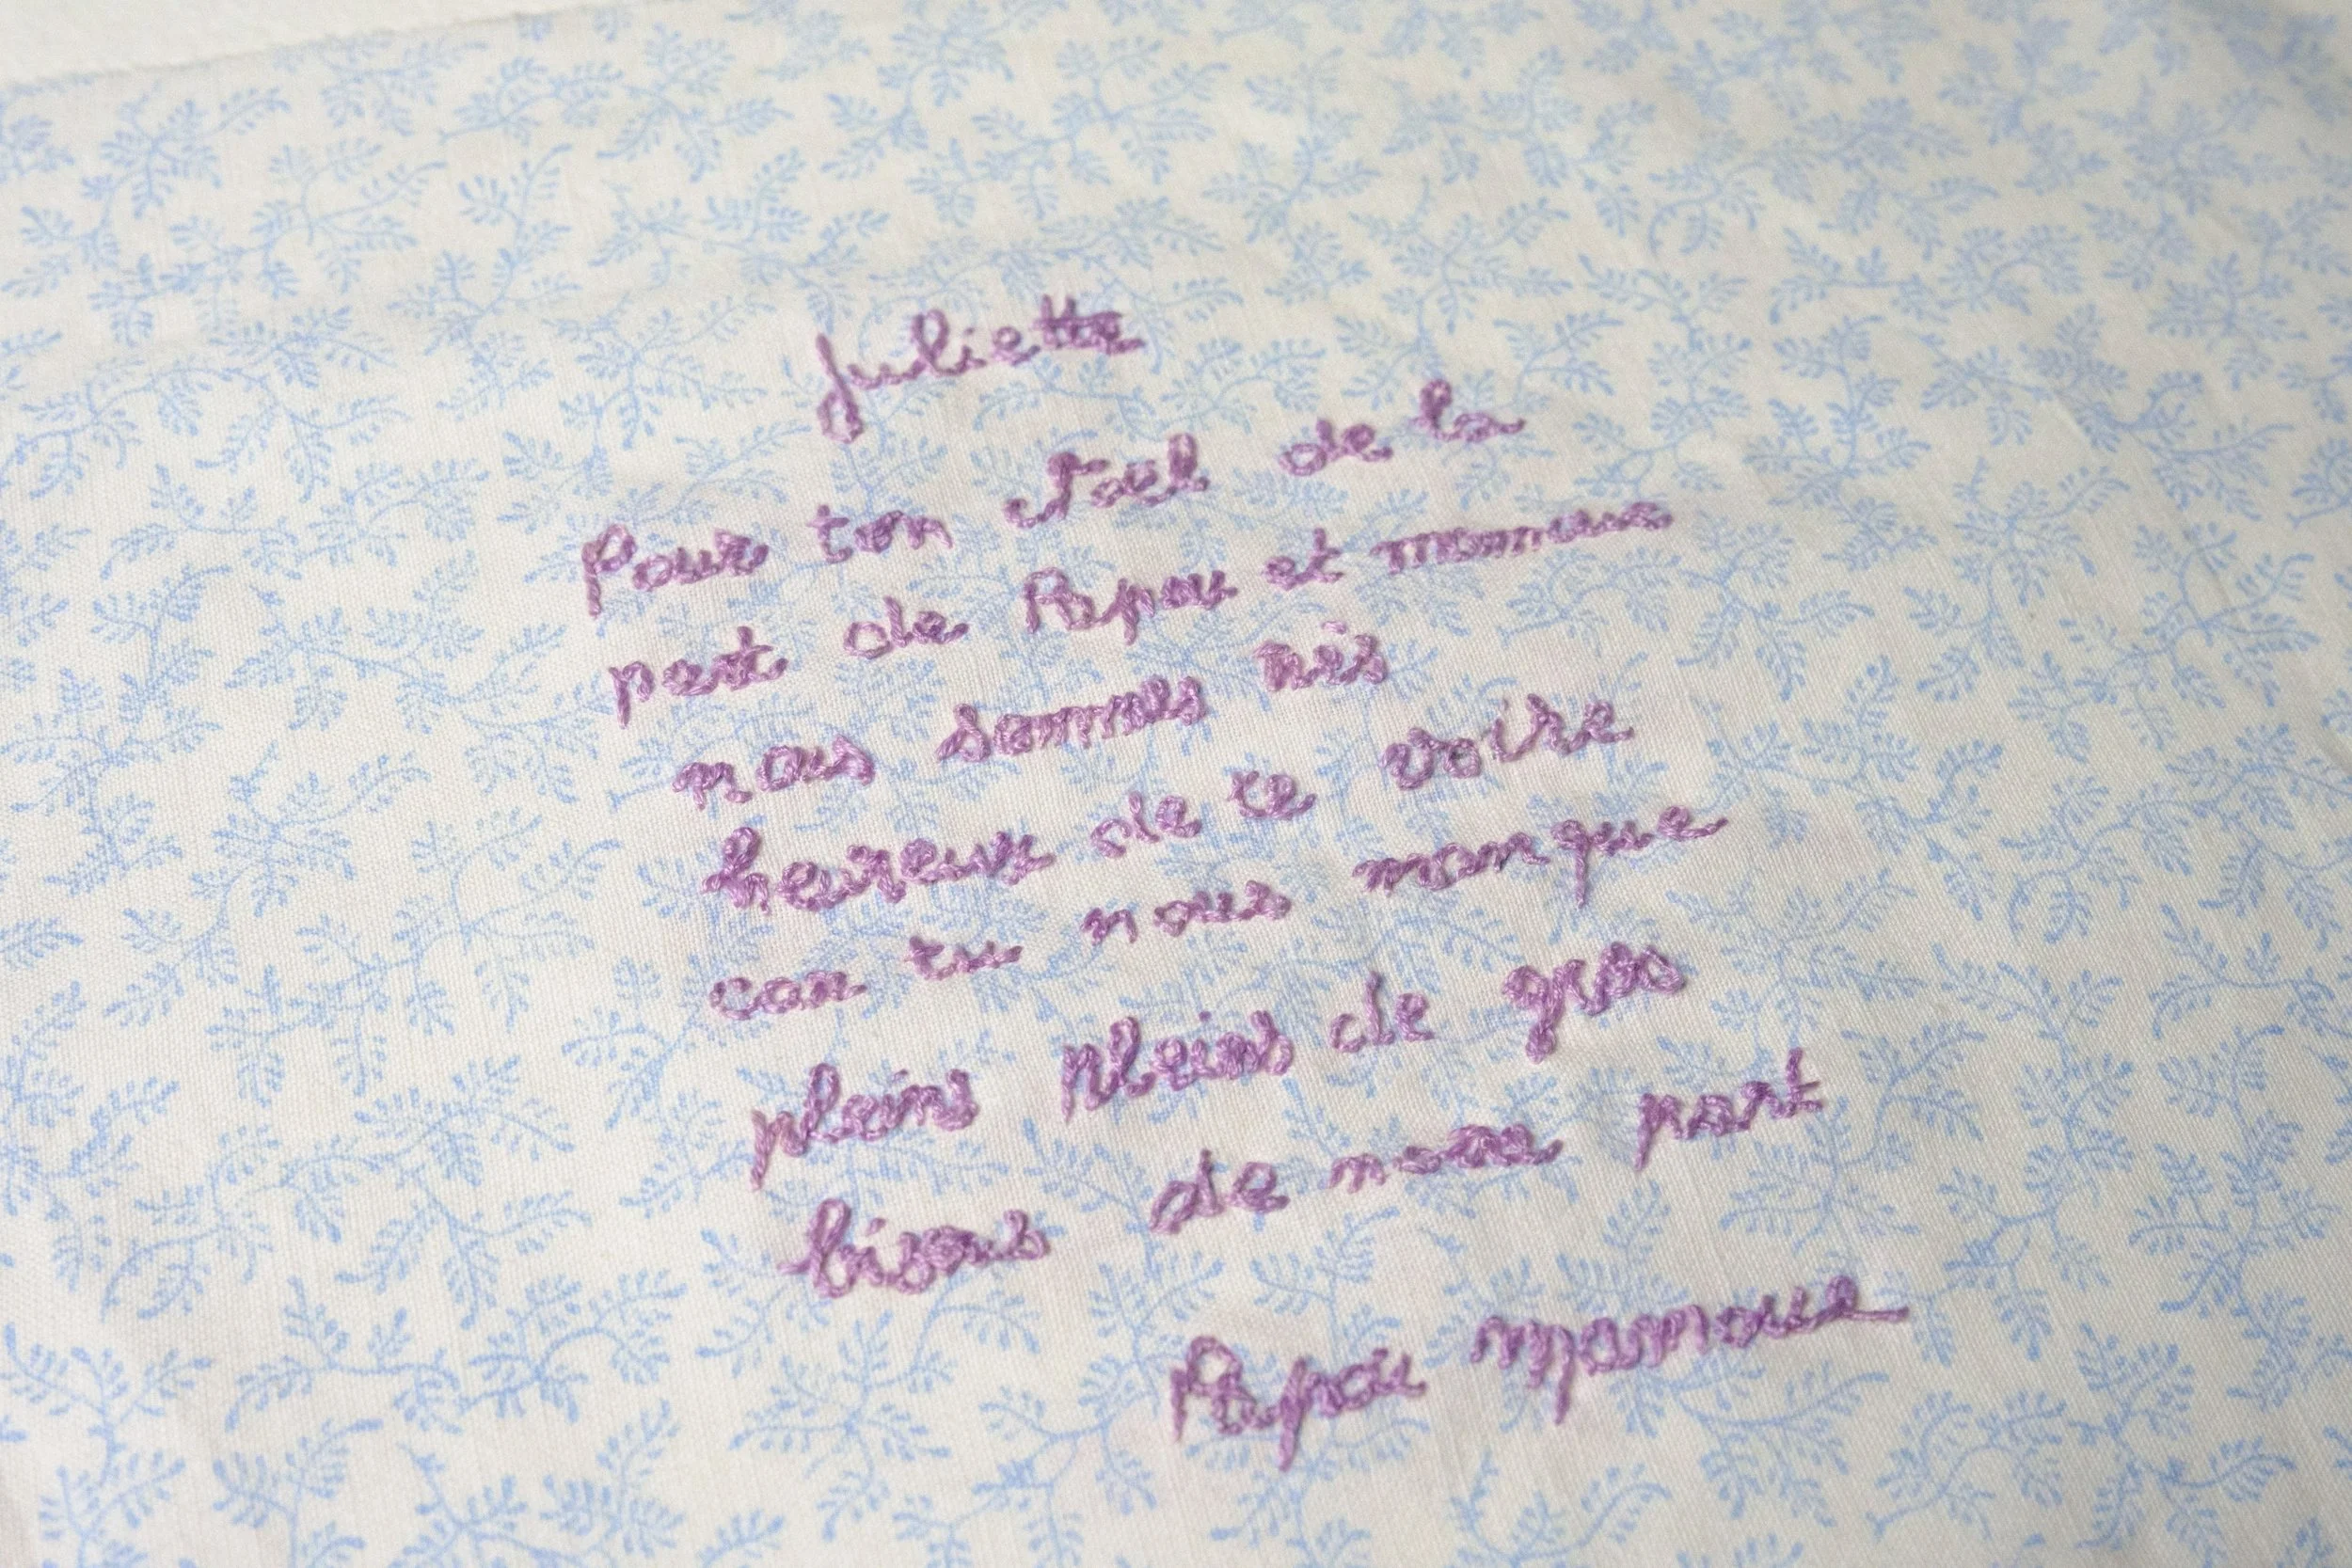 Juliette
Pour ton Noel de la
part de Papou et mamoue
nous sommes très
heureux de te voire
can tu nous manque
pleins pleins de gros
bisous de notre part
Papou mamoue